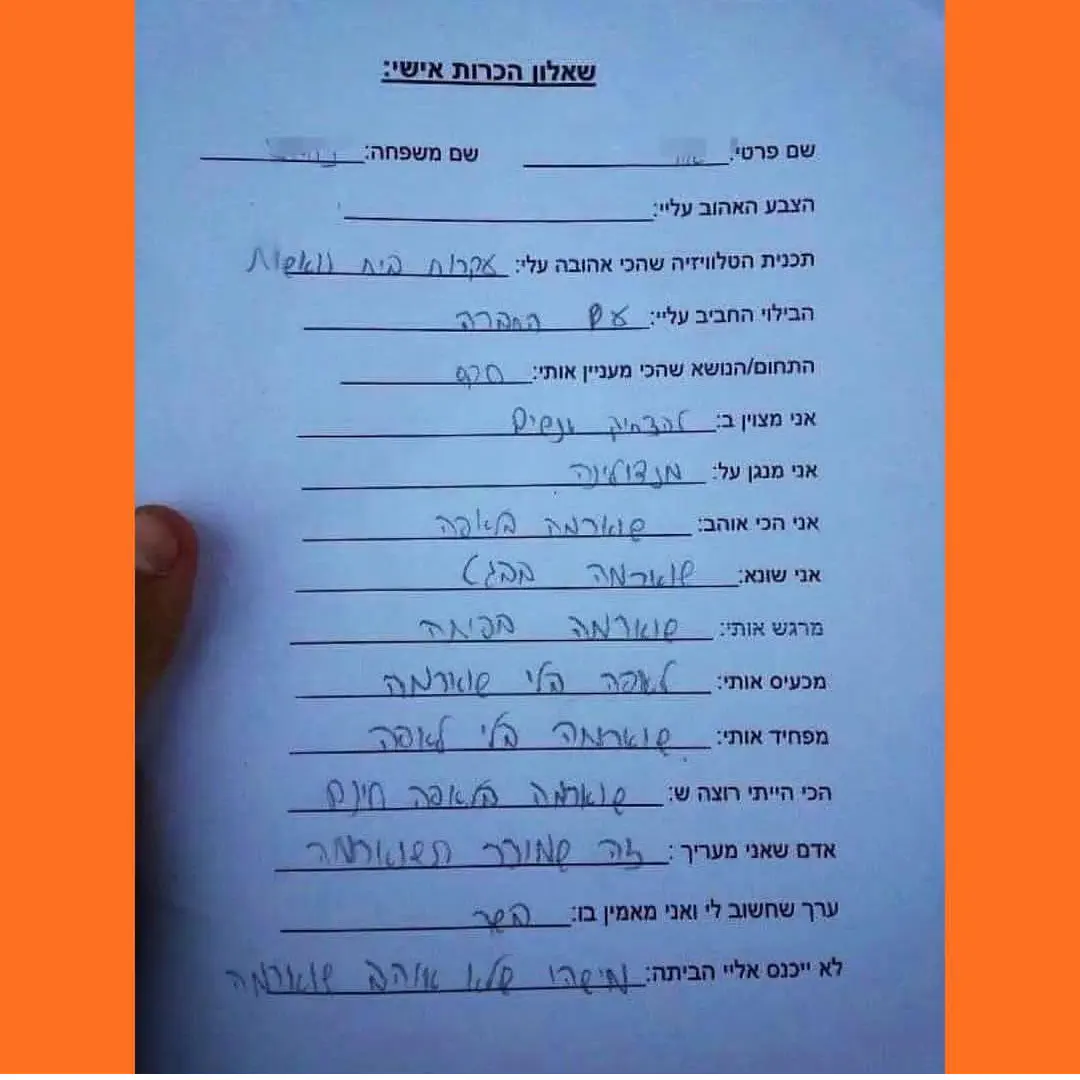 שאלון הכרות אישי:
שם פרטי: שם משפחה:
הצבע האהוב עליי:
תכנית הטלוויזיה שהכי אהובה עלי: עקרות בית נואשות
הבילוי החביב עליי: עם החברה
התחום/הנושא שהכי מעניין אותי:
אני מצוין ב: להצחיק אנשים
אני מנגן על: מנדולינה
אני הכי אוהב: שווארמה בלאפה
אני שונא: שווארמה בבגט
מרגש אותי: שווארמה בפיתה
מכעיס אותי: לאפה בלי שווארמה
מפחיד אותי: שווארמה בלי לאפה
הכי הייתי רוצה ש: שווארמה בלאפה חינם
אדם שאני מעריך: זה שמוכר תשווארמה
ערך שחשוב לי ואני מאמין בו: בשר
לא ייכנס אליי הביתה: מישהו שלא אוהב שווארמה